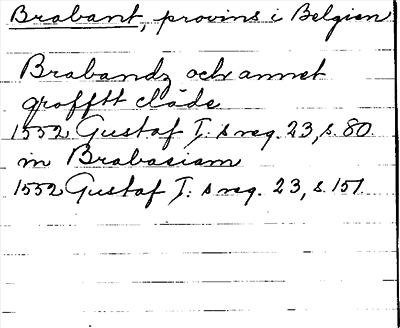 Brabant, provins i Belgien
Brabandz och annet
grofftt cläde
1552 Gustaf I: s reg. 23, s. 80.
in Brabasiam
1552 Gustaf I: s reg. 23, s. 151.